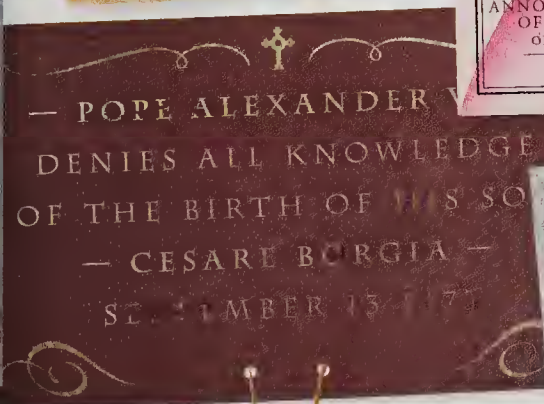 ANNO
OF
— POPE ALEXANDER V
DENIES ALL KNOWLEDGE
OF THE BIRTH OF HIS SO
— CESARE BORGIA —
SEPTEMBER 13